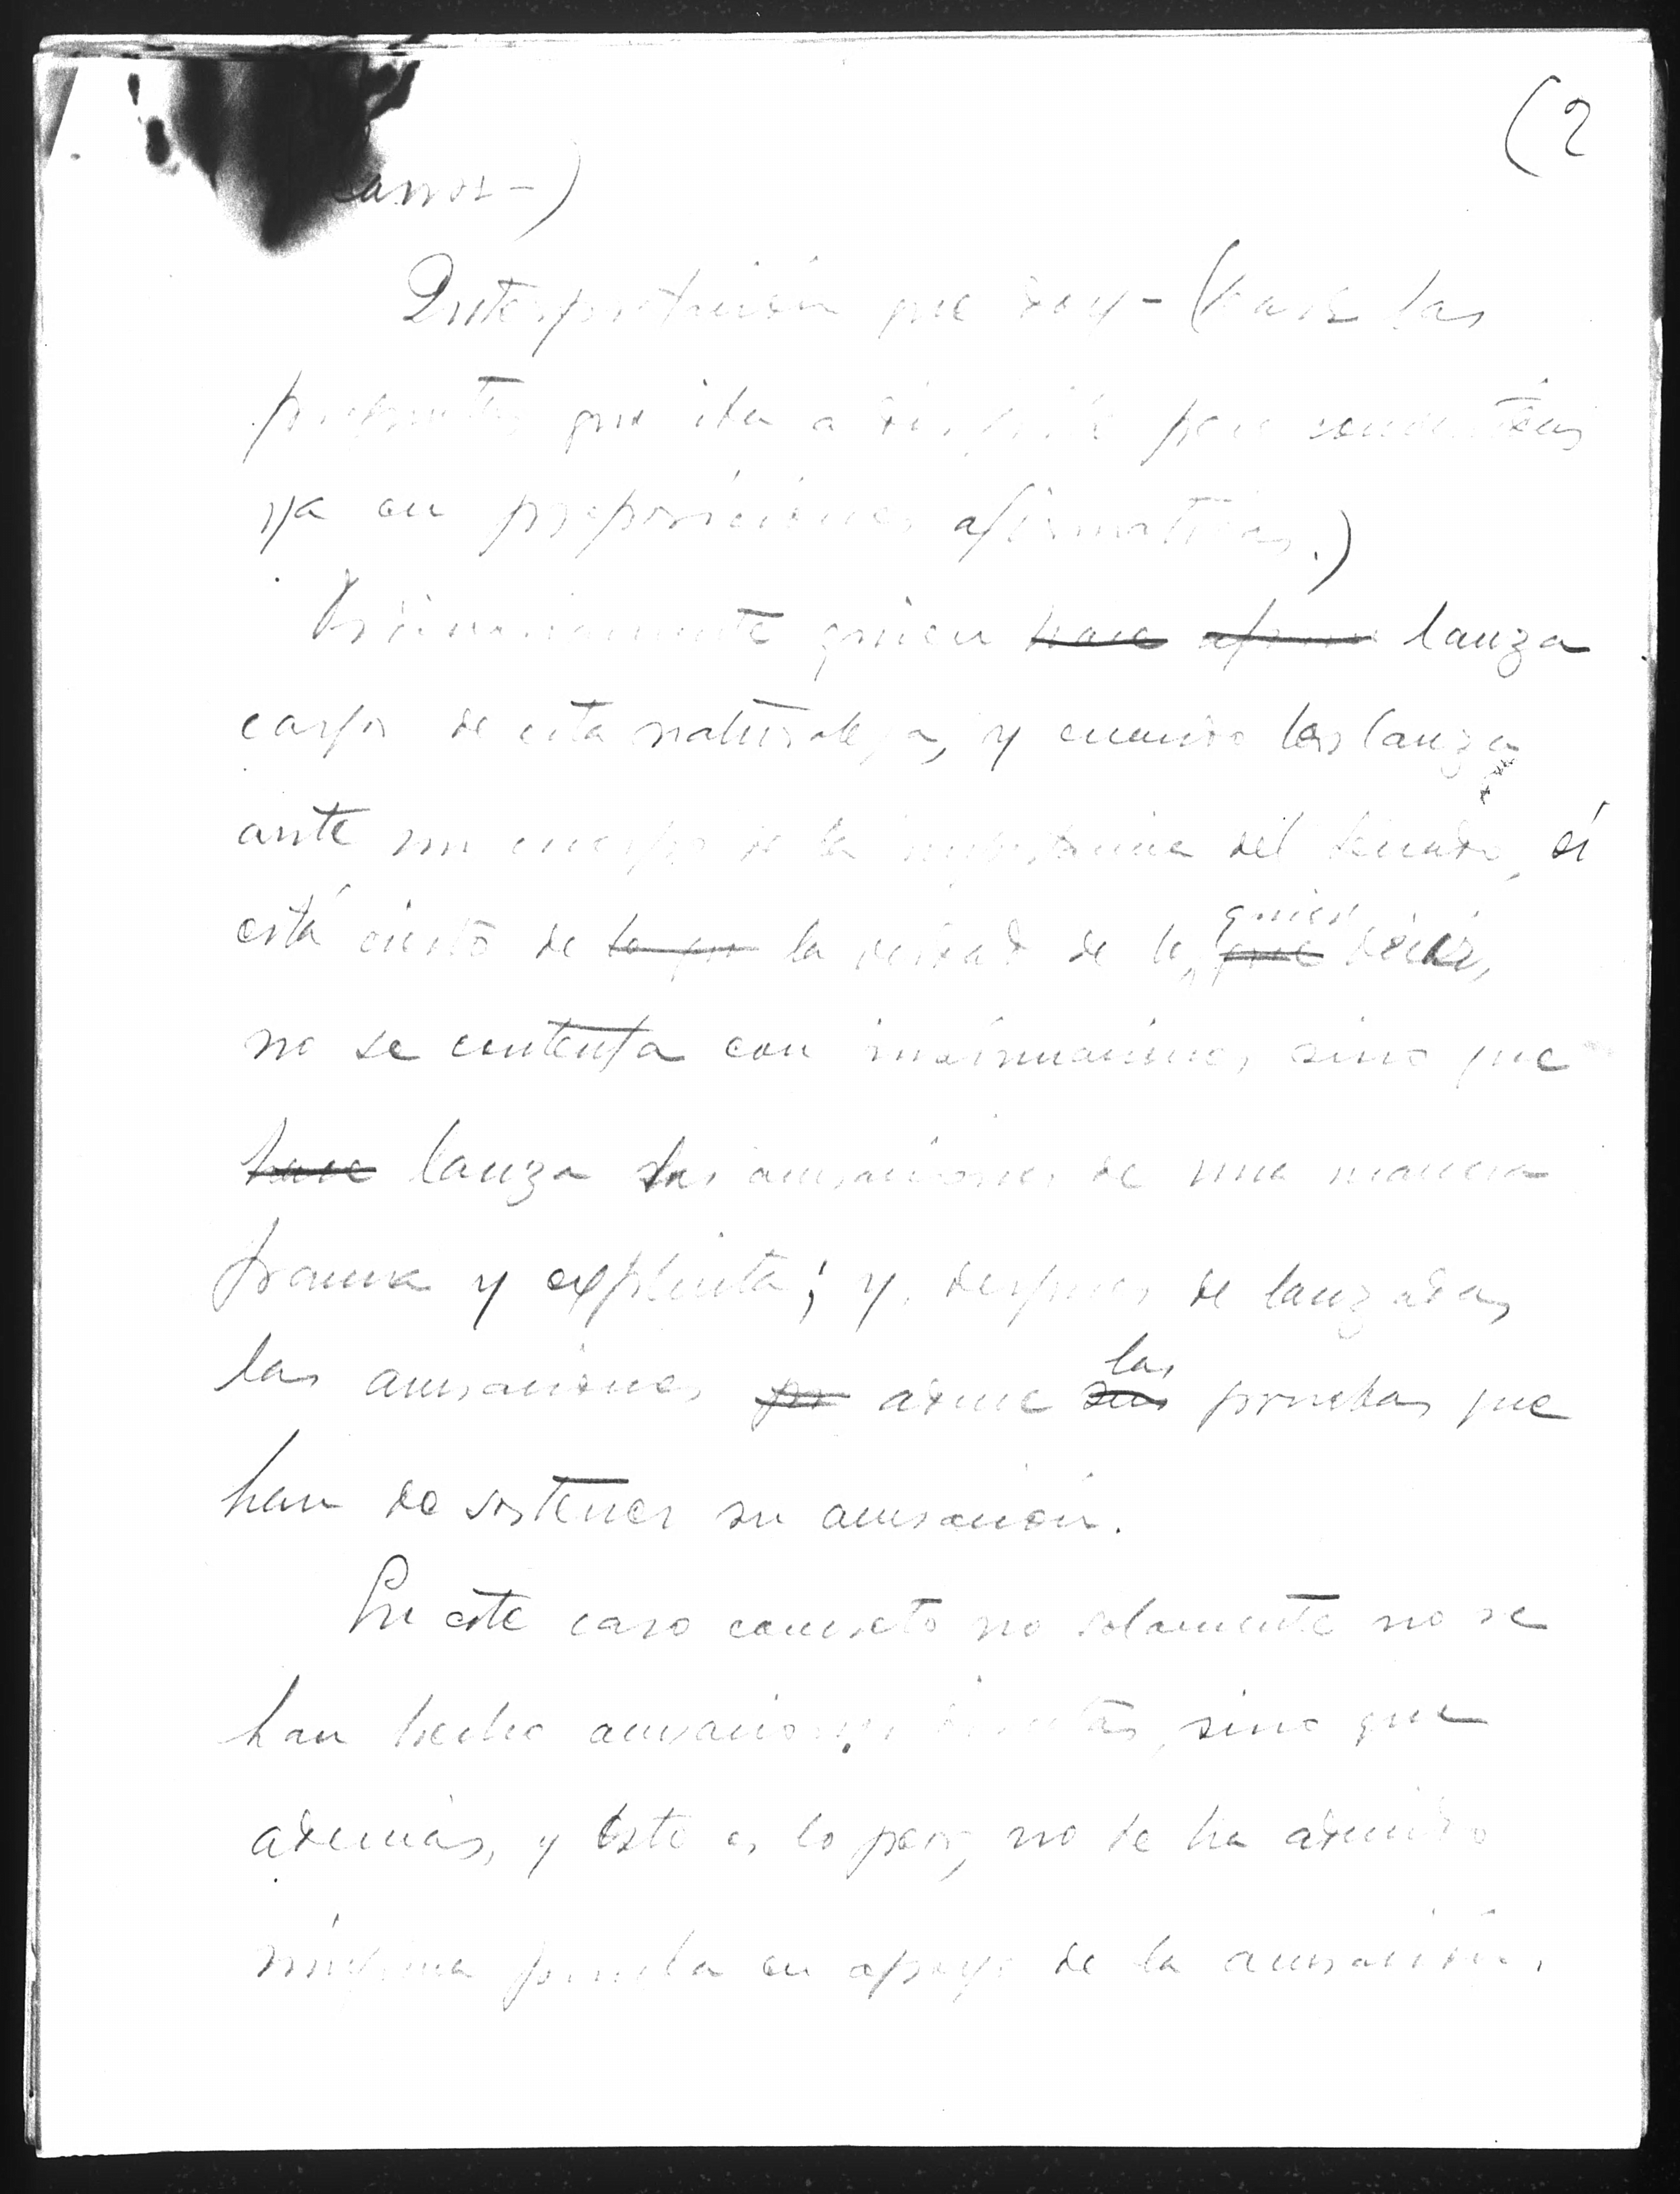 (2
Interpretación que doy - (hacer las
preguntas que iba a dirigirle pero convertidas
ya en proposiciones afirmativas.)
Ordinariamente quien hace lanza
cargos de esta naturaleza, y cuando los lanza
ante un cuerpo de la importancia del Senado, si
está cierto de la verdad de lo que quiere decir,
no se contenta con insinuaciones, sino que
hace lanza las acusaciones de una manera
franca y explicita; y, despues de lanzadas
las acusaciones aduce sus las pruebas que
han de sostener su acusación.
En este caso concreto no solamente no se
han hecho acusaciones directas, sino que
además, y esto es lo peor, no se ha aducido
ninguna prueba en apoyo de la acusación.